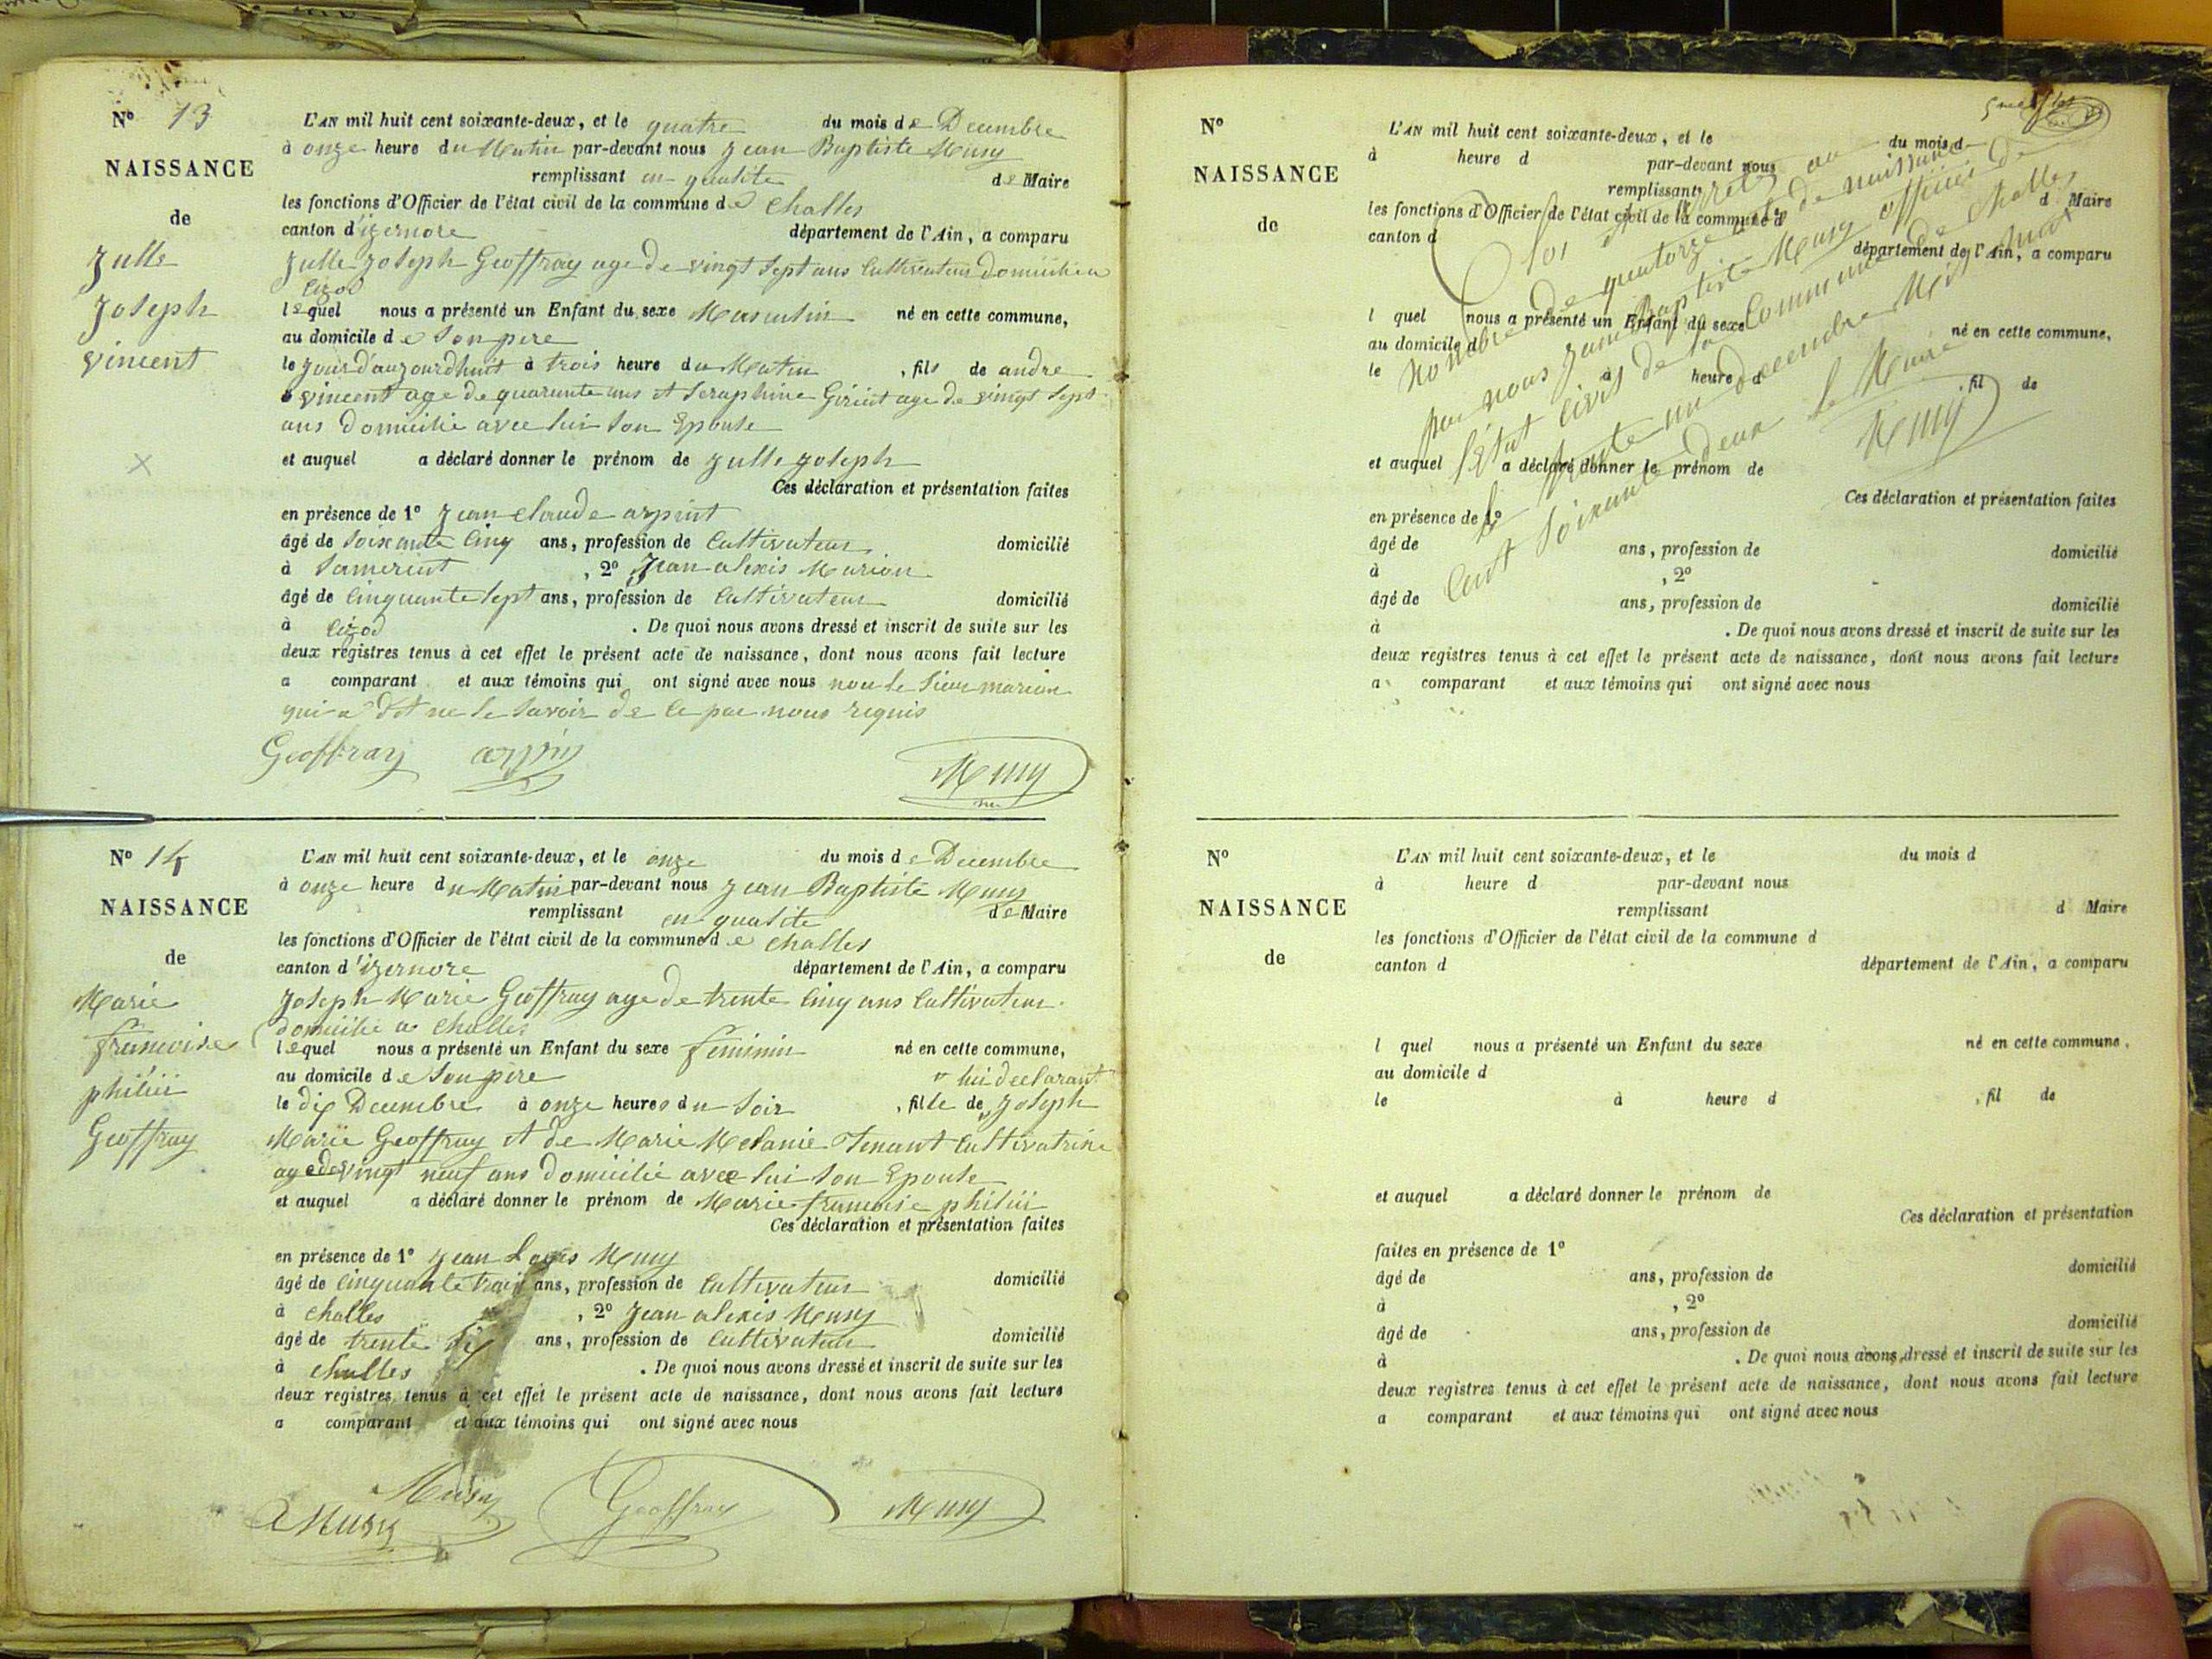 Nº 13
NAISSANCE
de
Julle
Joseph
vincent
L'AN mil huit cent soixante-deux, et le quatre du mois de Decembre
à onze heure du Matin par-devant nous Jean Baptiste Musy
remplissant en qualite de Maire
les fonctions d'Officier de l'état civil de la commune de Challes
canton d'izernore département de l'Ain, a comparu
Julle Joseph Geoffray age de vingt Sept ans Cultivateur domicilie a
Cizod
lequel nous a présenté un Enfant du sexe Masculin né en cette commune,
au domicile de Son pere
le Jour d'aujourdhuit à trois heure du Matin , fils de andre
vincent age de quarante ans et Seraphine age de vingt Sept
ans Domicilie avec lui Son Epouse
et auquel a déclaré donner le prénom de Julle Joseph
Ces déclaration et présentation faites
en présence de 1º Jean Claude arpint
âgé de Soixante Cinq ans, profession de Cultivateur domicilié
à , 2º Jean alexis Marion
âgé de Cinquante Sept ans, profession de Cultivateur domicilié
à Cizod . De quoi nous avons dressé et inscrit de suite sur les
deux registres tenus à cet effet le présent acte de naissance, dont nous avons fait lecture
a comparant et aux témoins qui ont signé avec nous non le Sieur marion
qui a dit ne le Savoir de ce par nous requis
Geoffray arpin Musy
Nº 14
NAISSANCE
de
Marie
francoise
philii
Geoffray
L'AN mil huit cent soixante-deux, et le onze du mois de Decembre
à onze heure du Matin par-devant nous Jean Baptiste Musy
remplissant en qualite de Maire
les fonctions d'Officier de l'état civil de la commune de Challes
canton d'izernore département de l'Ain, a comparu
Joseph Marie Geoffray age de trente Cinq ans Cultivateur
domicilie a Challes
lequel nous a présenté un Enfant du sexe feminin né en cette commune,
au domicile de Son pere lui declarant
le dix Decembre à onze heures du Soir , fille de Joseph
Marie Geoffray et de Marie Melanie Tenant Cultivatrice
age de vingt neuf ans Domicilie avec lui Son Epouse
et auquel a déclaré donner le prénom de Marie francoise philii
Ces déclaration et présentation faites
en présence de 1º Jean Louis Musy
âgé de Cinquante trois ans, profession de Cultivateur domicilié
à Challes , 2º Jean alexis Musy
âgé de trente six ans, profession de Cultivateur domicilié
à Challes . De quoi nous avons dressé et inscrit de suite sur les
deux registres tenus à cet effet le présent acte de naissance, dont nous avons fait lecture
a comparant et aux témoins qui ont signé avec nous
Musy
Musy Geoffray Musy
Nº
NAISSANCE
de
L'AN mil huit cent soixante-deux, et le du mois d
à heure d par-devant nous
remplissant d Maire
les fonctions d'Officier de l'état civil de la commune d
canton d département de l'Ain, a comparu
l quel nous a présenté un Enfant du sexe né en cette commune,
au domicile d
le à heure d , fil de
et auquel a déclaré donner le prénom de
Ces déclaration et présentation faites
en présence de 1º
âgé de ans, profession de domicilié
à , 2º
âgé de ans, profession de domicilié
à . De quoi nous avons dressé et inscrit de suite sur les
deux registres tenus à cet effet le présent acte de naissance, dont nous avons fait lecture
a comparant et aux témoins qui ont signé avec nous
Clos et arreté au
Nombre de quatorze acte de naissance
par nous Jean Baptiste Musy officier de
l'état civil de la Commune de Challes
le trente un decembre Mil huit
Cent Soixante deux le Maire
Musy
Nº
NAISSANCE
de
L'AN mil huit cent soixante-deux, et le du mois d
à heure d par-devant nous
remplissant d Maire
les fonctions d'Officier de l'état civil de la commune d
canton d département de l'Ain, a comparu
l quel nous a présenté un Enfant du sexe né en cette commune,
au domicile d
le à heure d , fil de
et auquel a déclaré donner le prénom de
Ces déclaration et présentation
faites en présence de 1º
âgé de ans, profession de domicilié
à , 2º
âgé de ans, profession de domicilié
à . De quoi nous avons dressé et inscrit de suite sur les
deux registres tenus à cet effet le présent acte de naissance, dont nous avons fait lecture
a comparant et aux témoins qui ont signé avec nous